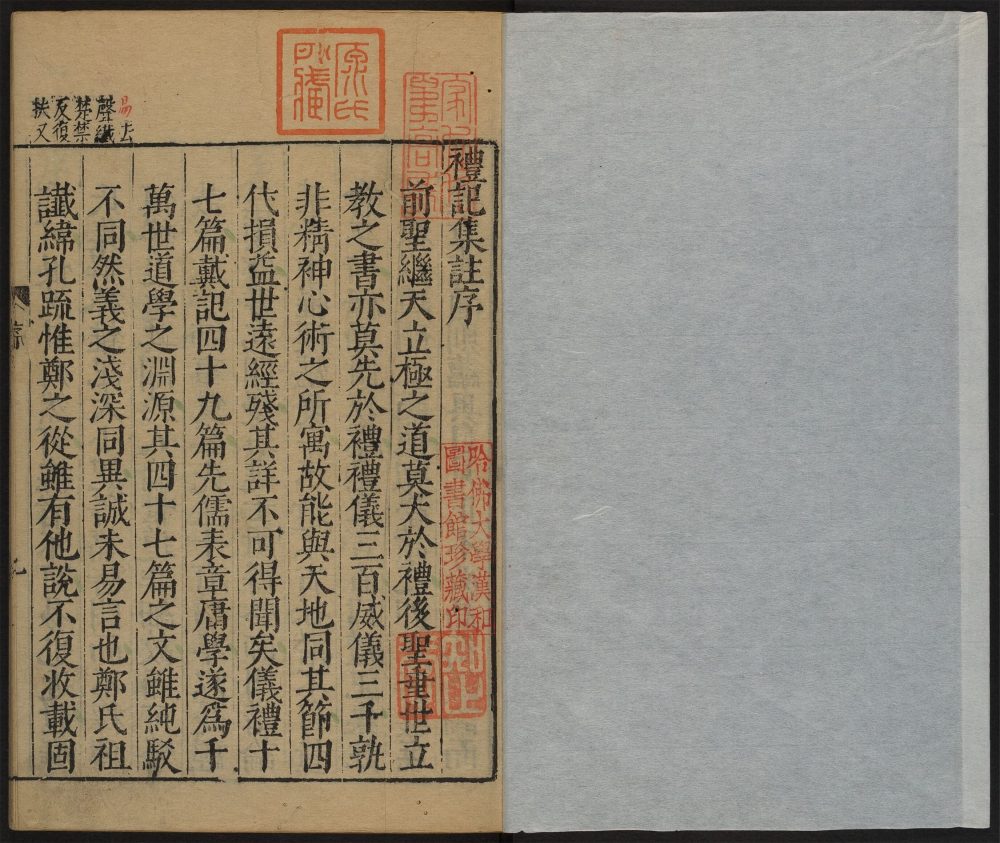 禮記集註序
前聖繼天立極之道莫大於禮後聖垂世立
教之書亦莫先於禮禮儀三百威儀三千孰
非精神心術之所寓故能與天地同其節四
代損益世遠經殘其詳不可得聞矣儀禮十
七篇戴記四十九篇先儒表章庸學遂爲千
萬世道學之淵源其四十七篇之文雖純駁
不同然義之淺深同異誠未易言也鄭氏祖
讖緯孔疏惟鄭之從雖有他說不復收載固
去
聲讖
楚禁
反復
扶又
哈佛大學漢和
圖書館珍藏印
序